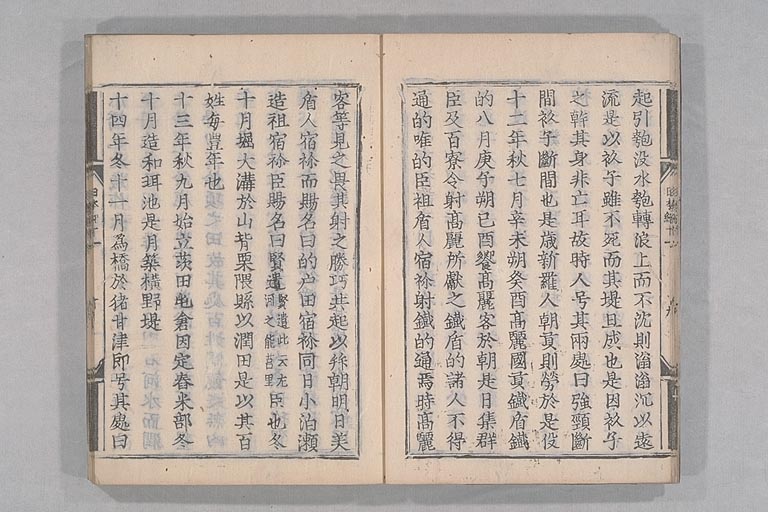 起引匏没水匏轉浪上而不沈則滔滔沉以遠
流是以衫子雖不死而其堤且成也是因衫子
之幹其身非亡耳故時人号其兩處曰強頸斷
間衫子斷間也是歳新羅人朝貢則勞於是役
十二年秋七月辛未朔癸酉髙麗國貢鐵盾鐵
的八月庚子朔己酉饗髙麗客於朝是日集群
臣及百寮令射髙麗所獻之鐵盾的諸人不得
通的唯的臣祖盾人宿祢射鐵的通焉時髙麗
客等見之畏其射之勝巧共起以拜朝明日美
盾人宿祢而賜名曰的户田宿祢同日小泊瀬
造祖宿祢臣賜名曰賢遺賢遺此云左河之能莒里臣也冬
十月堀大溝於山背栗隈縣以潤田是以其百
姓毎豐年也
十三年秋九月始立茨田屯倉因定舂米部冬
十月造和珥池是月築横野堤
十四年冬十一月爲橋於猪甘津即号其處曰